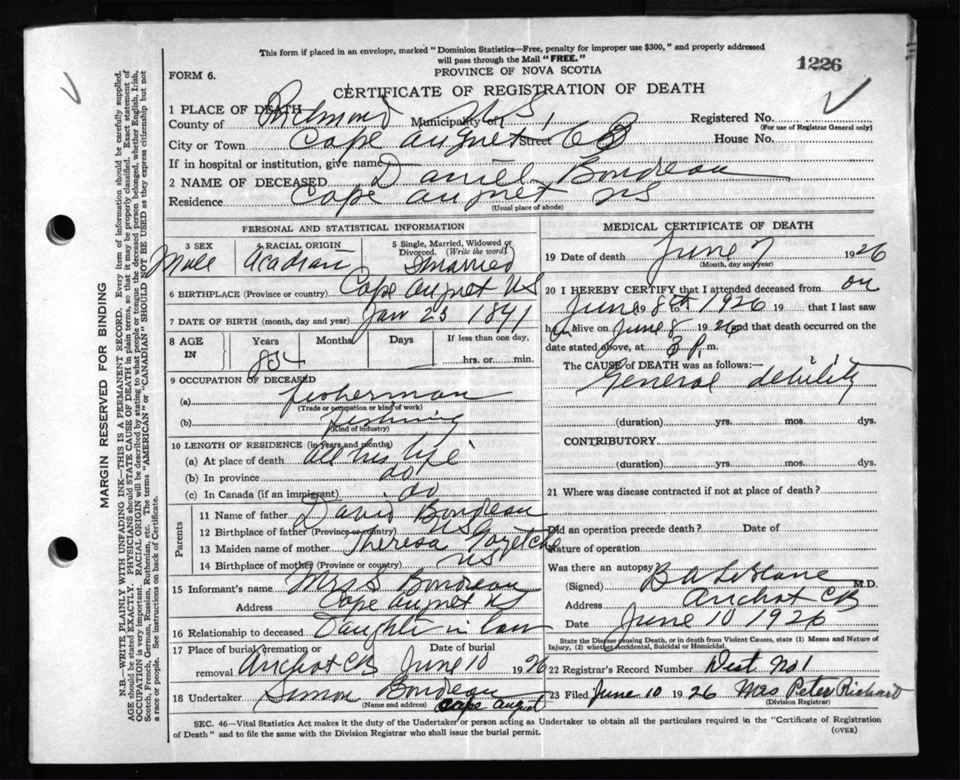 This form if placed in an envelope, marked "Dominion Statistics—Free, penalty for improper use $300," and properly addressed
will pass through the Mail "FREE."
PROVINCE OF NOVA SCOTIA
1226
FORM 6.
CERTIFICATE OF REGISTRATION OF DEATH
1 PLACE OF DEATH
County of Richmond Municipality of N S Registered No.
(For use of Registrar General only)
City or Town Cape Auguet C B Street House No.
If in hospital or institution, give name
2 NAME OF DECEASED Daniel Boudreau
Residence Cape Auguet N S
(Usual place of abode)
PERSONAL AND STATISTICAL INFORMATION
3 SEX Male
4 RACIAL ORIGIN Acadian
5 Single, Married, Widowed or Divorced. (Write the word) Married
6 BIRTHPLACE (Province or country) Cape Auguet N S
7 DATE OF BIRTH (month, day and year) Jan 23 1841
8 AGE IN Years Months Days If less than one day, hrs. or min.
9 OCCUPATION OF DECEASED
(a) fisherman
(Trade or occupation or kind of work)
(b) fishing
(Kind of industry)
10 LENGTH OF RESIDENCE (in years and months)
(a) At place of death All his life
(b) In province do
(c) In Canada (if an immigrant) do
Parents
11 Name of father David Boudreau
12 Birthplace of father (Province or country) N S
13 Maiden name of mother Theresa
14 Birthplace of mother (Province or country) N S
15 Informant's name Mrs S Boudreau
Address Cape Auguet N S
16 Relationship to deceased Daughter in law
17 Place of burial, cremation or removal Arichat C B Date of burial June 10 1926
18 Undertaker Simon Boudreau
(Name and address) Cape Auguet
MEDICAL CERTIFICATE OF DEATH
19 Date of death June 7 1926
(Month, day and year)
20 I HEREBY CERTIFY that I attended deceased from on
June 8th 1926 19 that I last saw
him alive on June 8 1926 and that death occurred on the
date stated above, at 3 P. m.
The CAUSE OF DEATH was as follows:—
General debility
(duration) yrs. mos. dys.
CONTRIBUTORY
(duration) yrs. mos. dys.
21 Where was disease contracted if not at place of death?
Did an operation precede death? Date of
Nature of operation
Was there an autopsy?
(Signed) B A LeBlanc M.D.
Address Arichat C B
Date June 10 1926
State the Disease causing Death, or in death from Violent Causes, state (1) Means and Nature of
Injury, (2) whether Accidental, Suicidal or Homicidal.
22 Registrar's Record Number Dist No 1
23 Filed June 10 1926 Mrs Peter Richard
(Division Registrar)
SEC. 46—Vital Statistics Act makes it the duty of the Undertaker or person acting as Undertaker to obtain all the particulars required in the "Certificate of Registration
of Death" and to file the same with the Division Registrar who shall issue the burial permit.
(OVER)
MARGIN RESERVED FOR BINDING
N.B.—WRITE PLAINLY WITH UNFADING INK—THIS IS A PERMANENT RECORD. Every item of information should be carefully supplied.
AGE should be stated EXACTLY. PHYSICIANS should STATE CAUSE OF DEATH in plain terms, so that it may be properly classified. Exact statement of
OCCUPATION is very important. RACIAL ORIGIN will be described by stating to what people or tongue the deceased person belonged, whether English, Irish,
Scotch, French, German, Russian, Ruthenian, etc. The terms "AMERICAN" or "CANADIAN" SHOULD NOT BE USED as they express citizenship but not
a race or people. See instructions on back of Certificate.